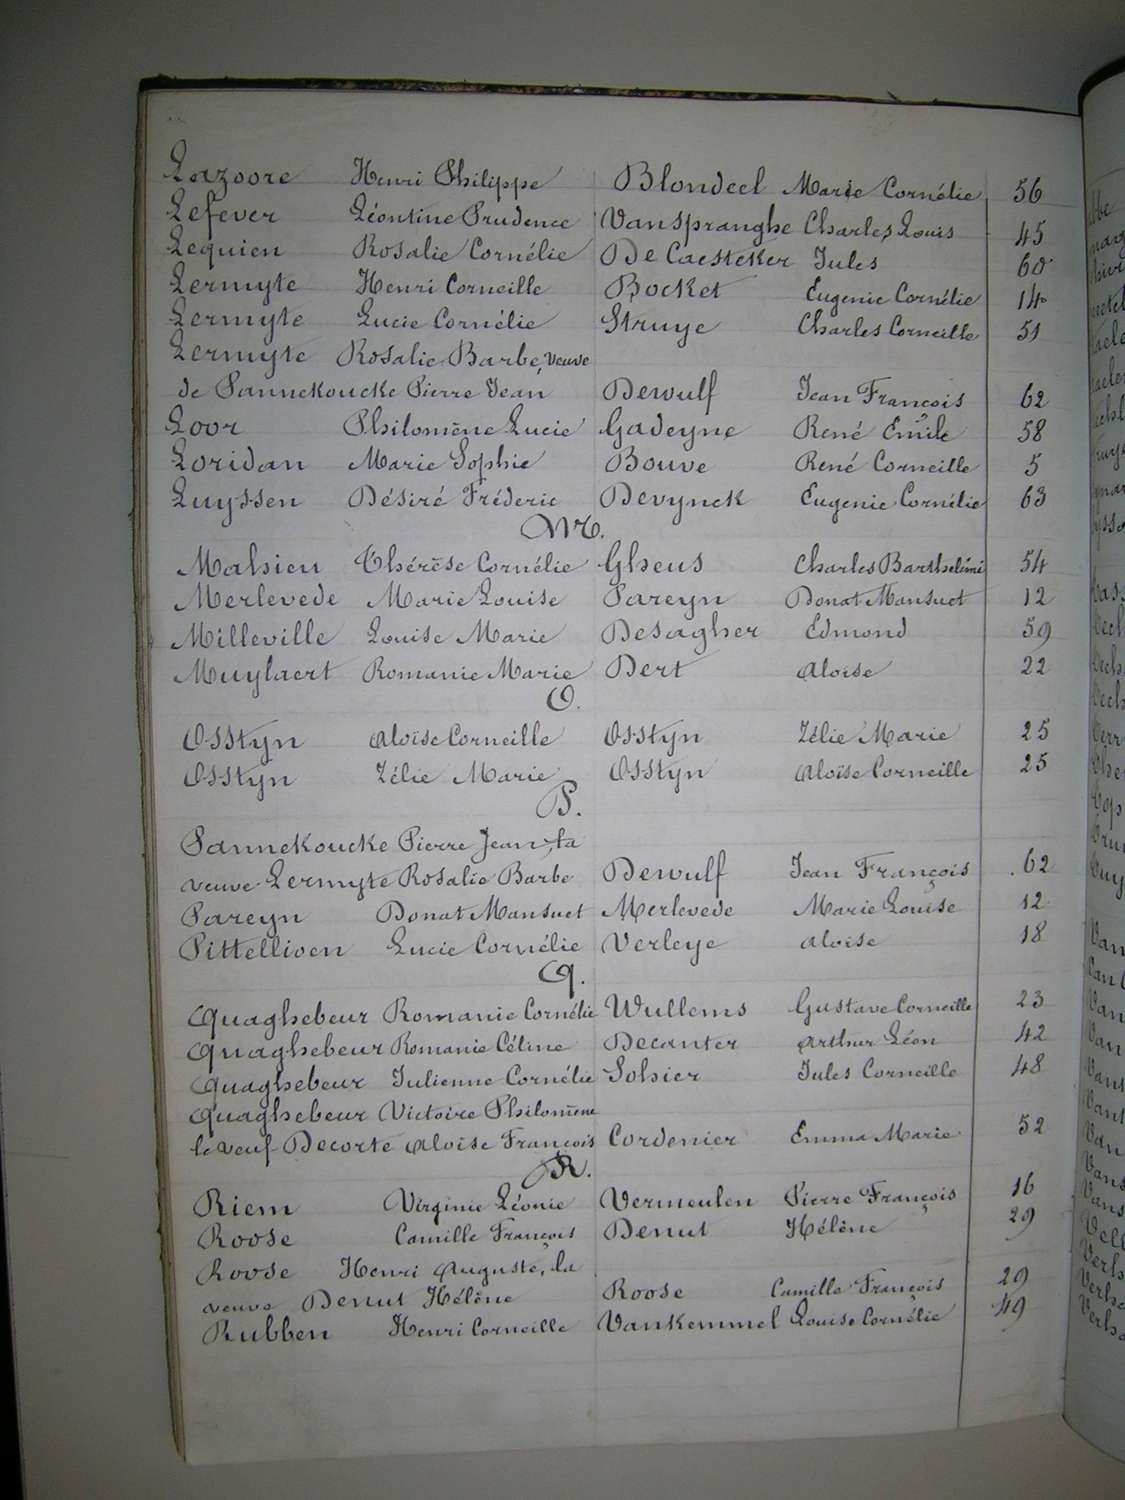 Lazoore Henri Philippe Blondeel Marie Cornélie 56
Lefever Léontine Prudence Vanspranghe Charles Louis 45
Lequien Rosalie Cornélie De Caesteker Jules 60
Lermyte Henri Corneille Bocket Eugenie Cornélie 14
Lermyte Lucie Cornélie Struye Charles Corneille 51
Lermyte Rosalie Barbe, veuve
de Pannekoucke Pierre Jean Dewulf Jean François 62
Loor Philomène Lucie Gadeyne René Emile 58
Loridan Marie Sophie Bouve René Corneille 5
Luyssen Désiré Fréderic Devynck Eugenie Cornélie 63
M.
Mahieu Thérèse Cornélie Gheus Charles Barthelémi 54
Merlevede Marie Louise Pareyn Donat Mansuet 12
Milleville Louise Marie Desagher Edmond 59
Muylaert Romanie Marie Dert Aloïse 22
O.
Osstyn Aloïse Corneille Osstyn Zélie Marie 25
Osstyn Zélie Marie Osstyn Aloïse Corneille 25
P.
Pannekoucke Pierre Jean, la
veuve Lermyte Rosalie Barbe Dewulf Jean François 62
Pareyn Donat Mansuet Merlevede Marie Louise 12
Pittellioen Lucie Cornélie Verleye Aloïse 18
Q.
Quaghebeur Romanie Cornélie Wullems Gustave Corneille 23
Quaghebeur Romanie Céline Decanter Arthur Léon 42
Quaghebeur Julienne Cornélie Sohier Jules Corneille 48
Quaghebeur Victoire Philomène
le veuf Decorte Aloïse François Cordenier Emma Marie 52
R.
Riem Virginie Léonie Vermeulen Pierre François 16
Roose Camille François Denut Hélène 29
Roose Henri Auguste, la
veuve Denut Hélène Roose Camille François 29
Rubben Henri Corneille Vankemmel Louise Cornélie 49